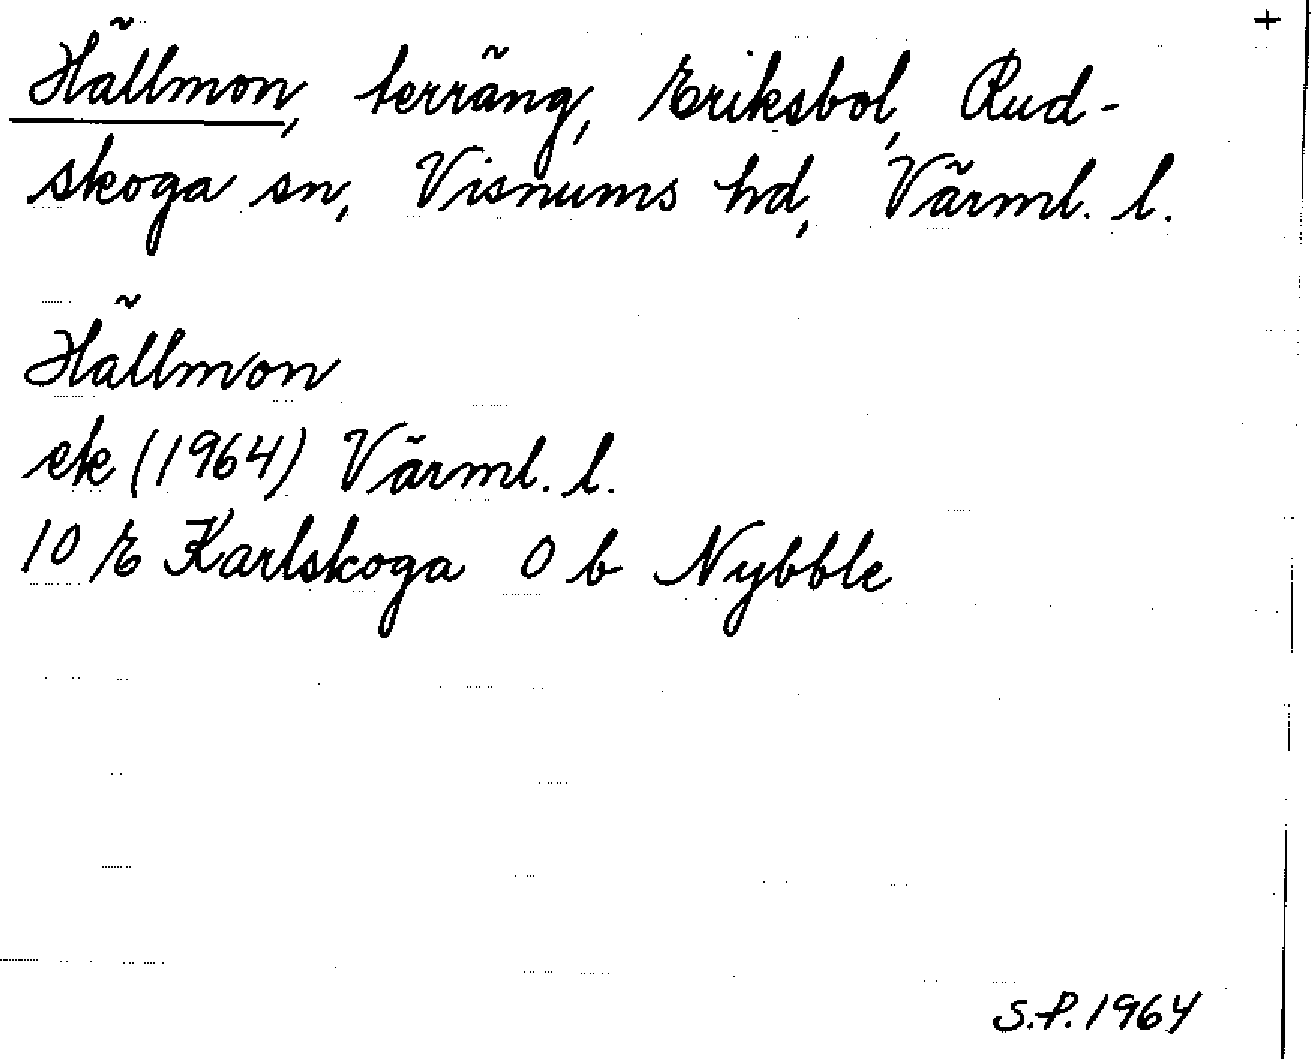 +
Hällmon, terräng, Eriksbol, Rud-
skoga sn, Visnums hd, Värml. l.
Hällmon
ek (1964) Värml. l.
10 E Karlskoga 0 b Nybble
S.P. 1964